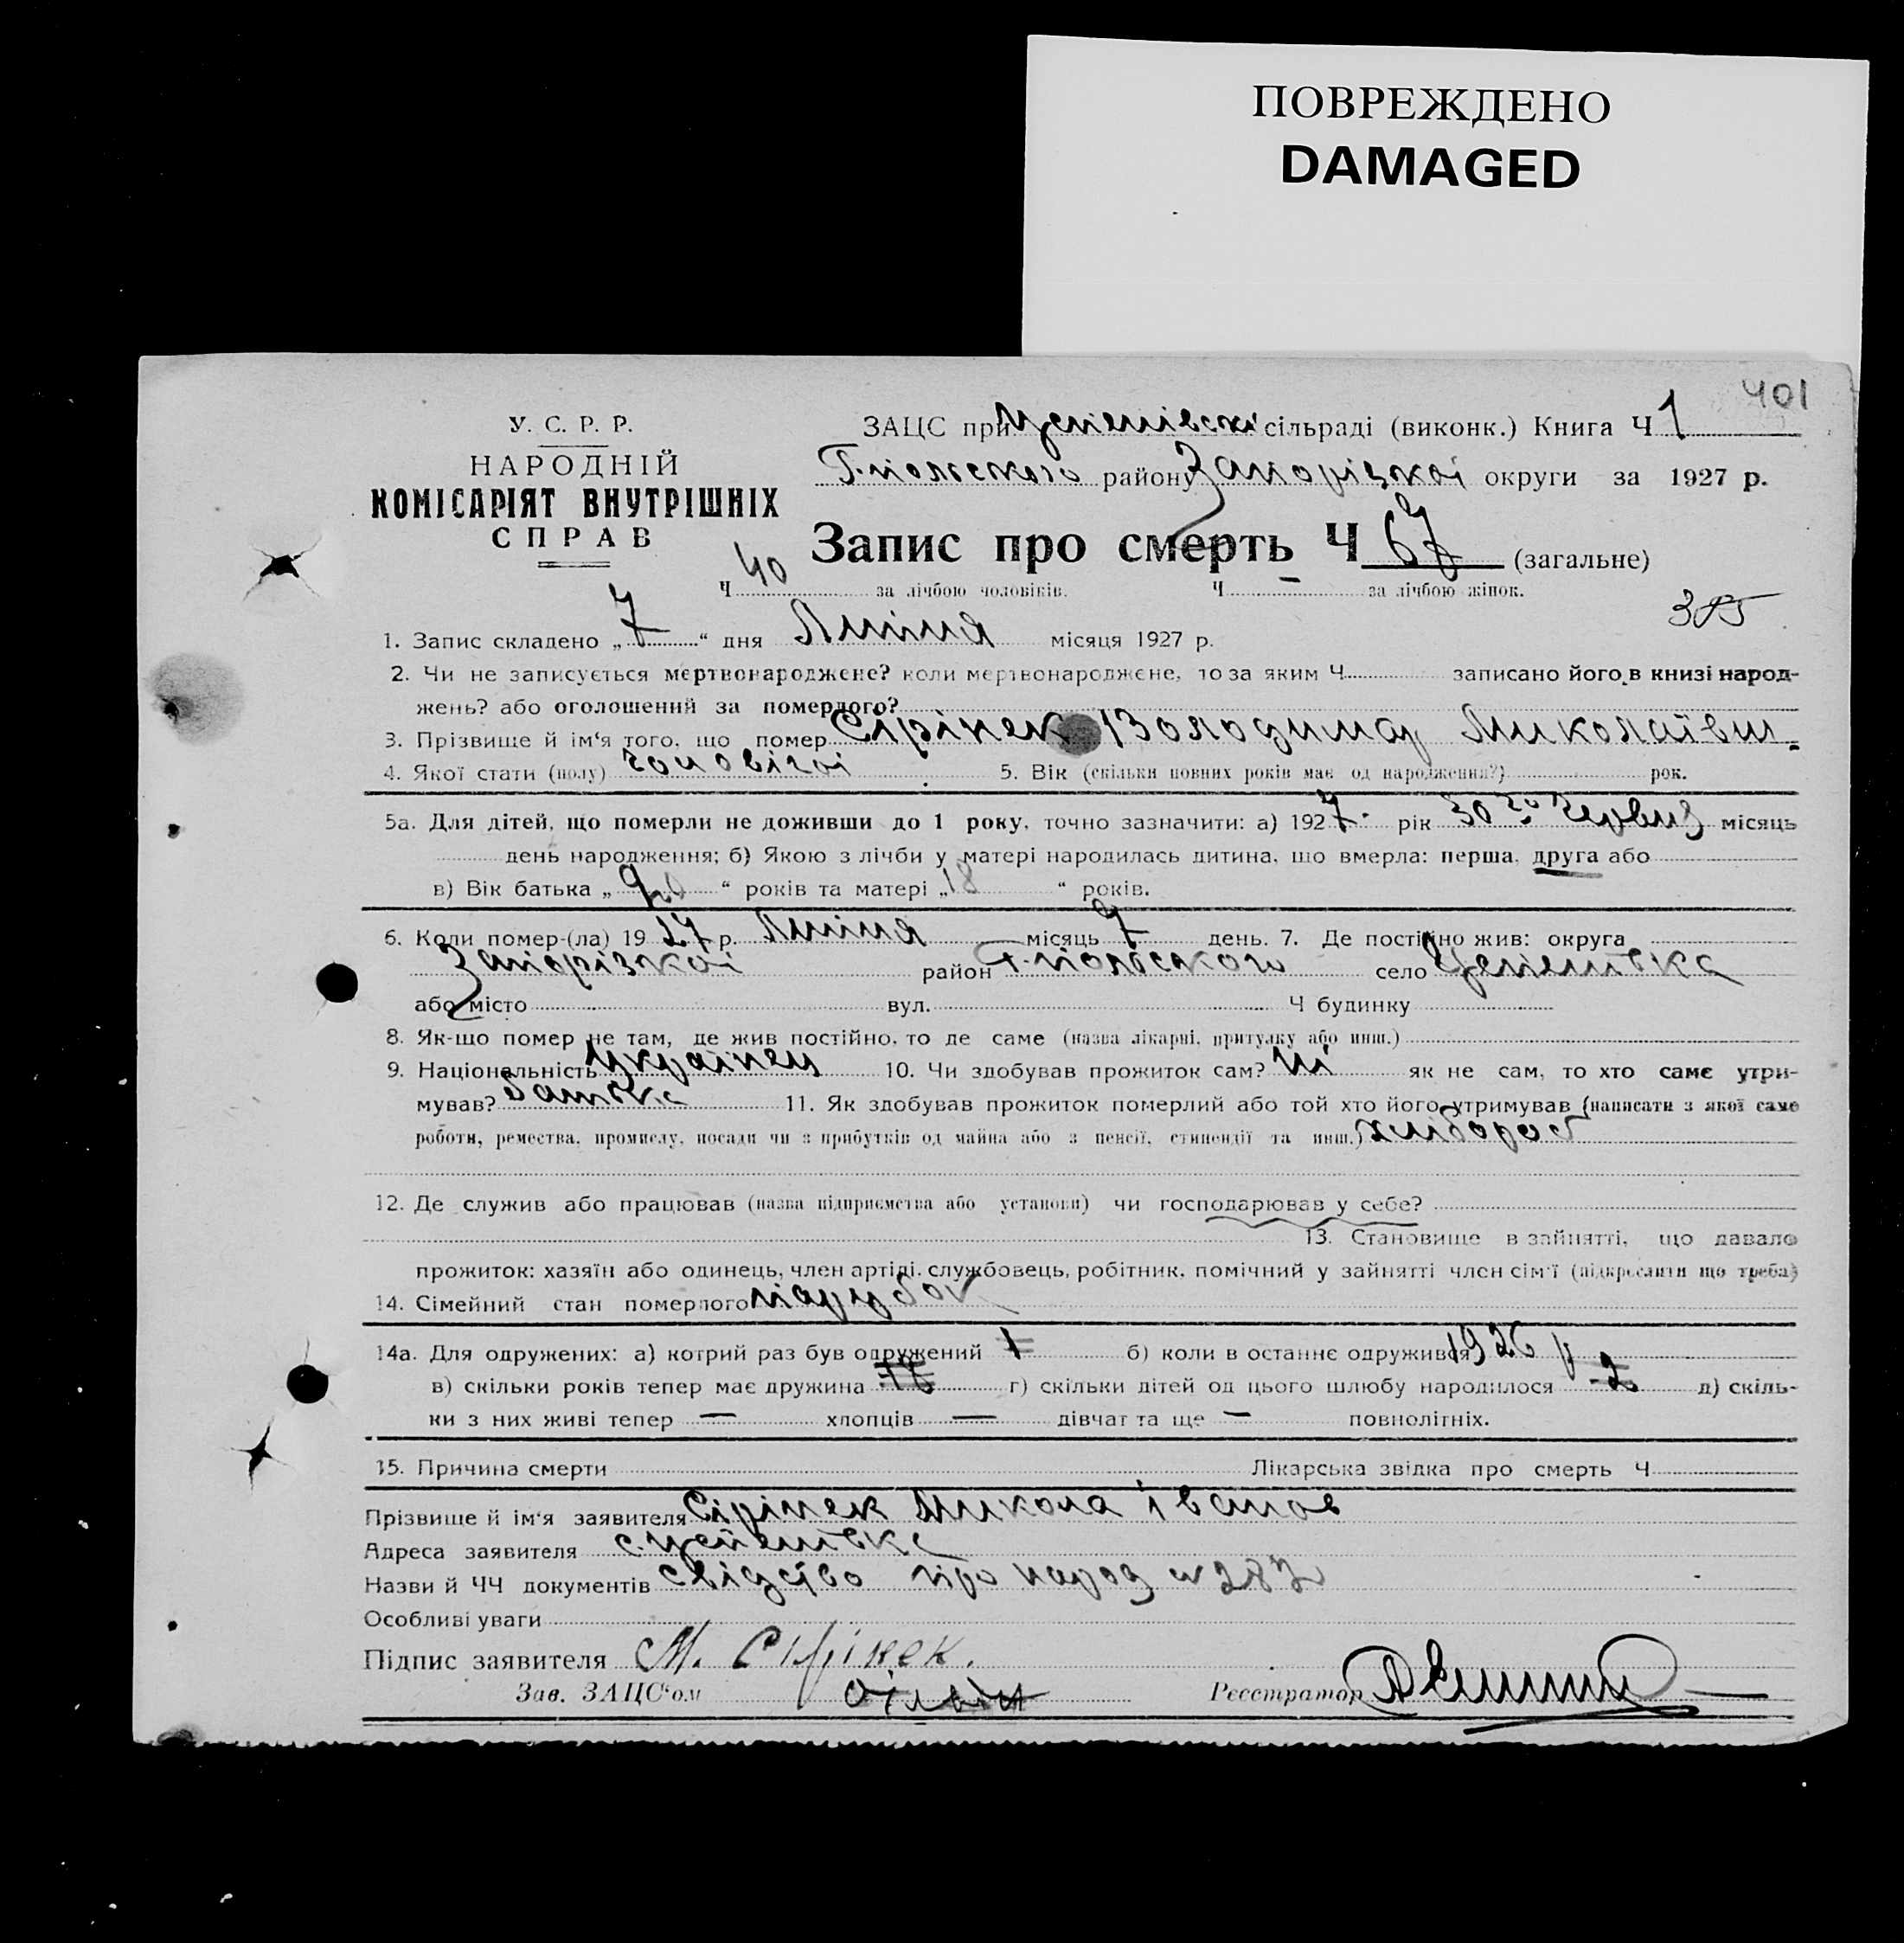 ПОВРЕЖДЕНО
DAMAGED
401
У. С. Р. Р.
НАРОДНІЙ
КОМІСАРІЯТ ВНУТРІШНІХ
СПРАВ
ЗАЦС при Успенівскі сільраді (виконк.) Книга Ч 1
Г-польского району Запорізкої округи за 1927 р.
Запис про смерть Ч 67 (загальне)
Ч 40 за лічбою чоловіків. Ч — за лічбою жінок.
385
1. Запис складено „ 7 “ дня Липня місяця 1927 р.
2. Чи не записується мертвонароджене? коли мертвонароджене, то за яким Ч записано його в книзі народ-
жень? або оголошений за померлого?
3. Прізвище й ім‘я того, що помер Сірінек Володимар Миколаївич
4. Якої стати (полу) чоловічої 5. Вік (скільки повних років має од народження?) рок.
5а. Для дітей, що померли не доживши до 1 року, точно зазначити: а) 1927 рік 30го червня місяць
день народження; б) Якою з лічби у матері народилась дитина, що вмерла: перша, друга або
в) Вік батька „ 20 “ років та матері „ 18 “ років.
6. Коли помер-(ла) 1927 р. Липня місяць 7 день. 7. Де постійно жив: округа
Запорізкої район Г-польского село Успенівка
або місто вул. Ч будинку
8. Як-що помер не там, де жив постійно, то де саме (назва лікарні, притулку або инш.)
9. Національність Українец 10. Чи здобував прожиток сам? Ні як не сам, то хто саме утри-
мував? Батько 11. Як здобував прожиток померлий або той хто його утримував (написати з якої саме
роботи, ремества, промислу, посади чи з прибутків од майна або з пенсії, стипендії та инш.) хлібороб
12. Де служив або працював (назва підприємства або установи) чи господарював у себе?
13. Становище в зайнятті, що давало
прожиток: хазяїн або одинець, член артілі, службовець, робітник, помічний у зайнятті член сім‘ї (підкреслити що треба)
14. Сімейний стан померлого парубок
14а. Для одружених: а) котрий раз був одружений 1 б) коли в останнє одружився 1926 р
в) скільки років тепер має дружина 18 г) скільки дітей од цього шлюбу народилося 2 д) скіль-
ки з них живі тепер — хлопців — дівчат та ще — повнолітніх.
15. Причина смерти Лікарська звідка про смерть Ч
Прізвище й ім‘я заявителя Сірінек Микола Іванов
Адреса заявителя с. Успенівка
Назви й ЧЧ документів свідство про народ № 282
Особливі уваги
Підпис заявителя М. Сірінек.
Зав. ЗАЦС‘ом Реєстратор